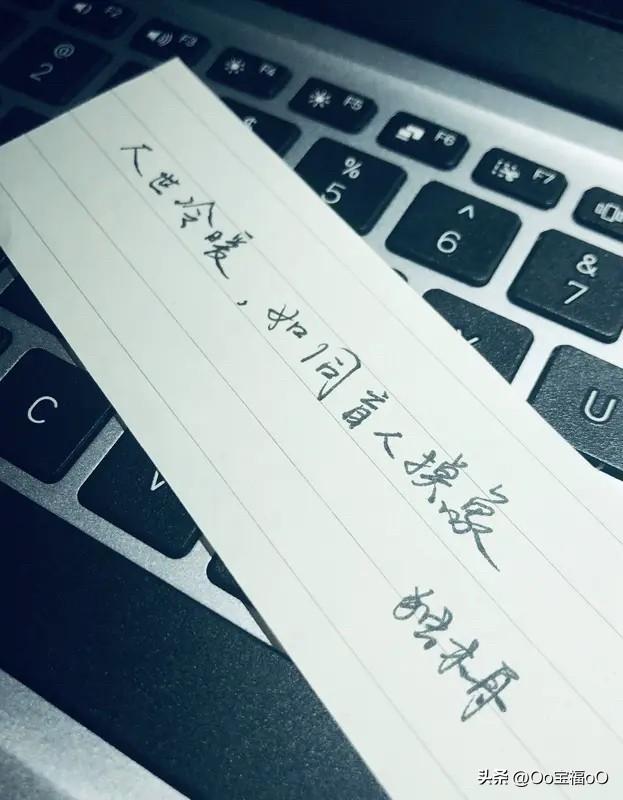 F2
F3
F4
F5
F6
F7
@
2
%
5
^
6
&
7
U
C
V
人世冷暖，如同盲人摸象
头条 @Oo宝福oO